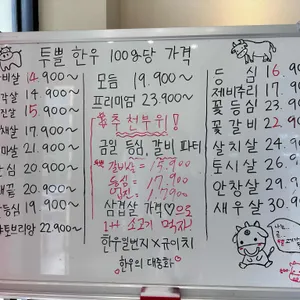 투뿔 한우 100g당 가격
비살 14.900~
각살 14.900~
진살 15.900~
채살 17.900~
마살 21.900~
안심 20.900~
채끝 20.900~
등심 19.900~
샤토브리앙 22.900~
모듬 19.900~
프리미엄 23.900~
추천부위!
금일 등심, 갈비 파티
갈비살 = 15.900
등심 = 17.900
삼겹살 가격♡으로
1++ 소고기 먹자!
한우일번지 X 구이치
한우의 대중화
등심 16.9
제비추리 17.9
꽃등심 23.9
꽃갈비 22.9
살치살 24.9
토시살 26.9
안창살 29.9
새우살 30.9